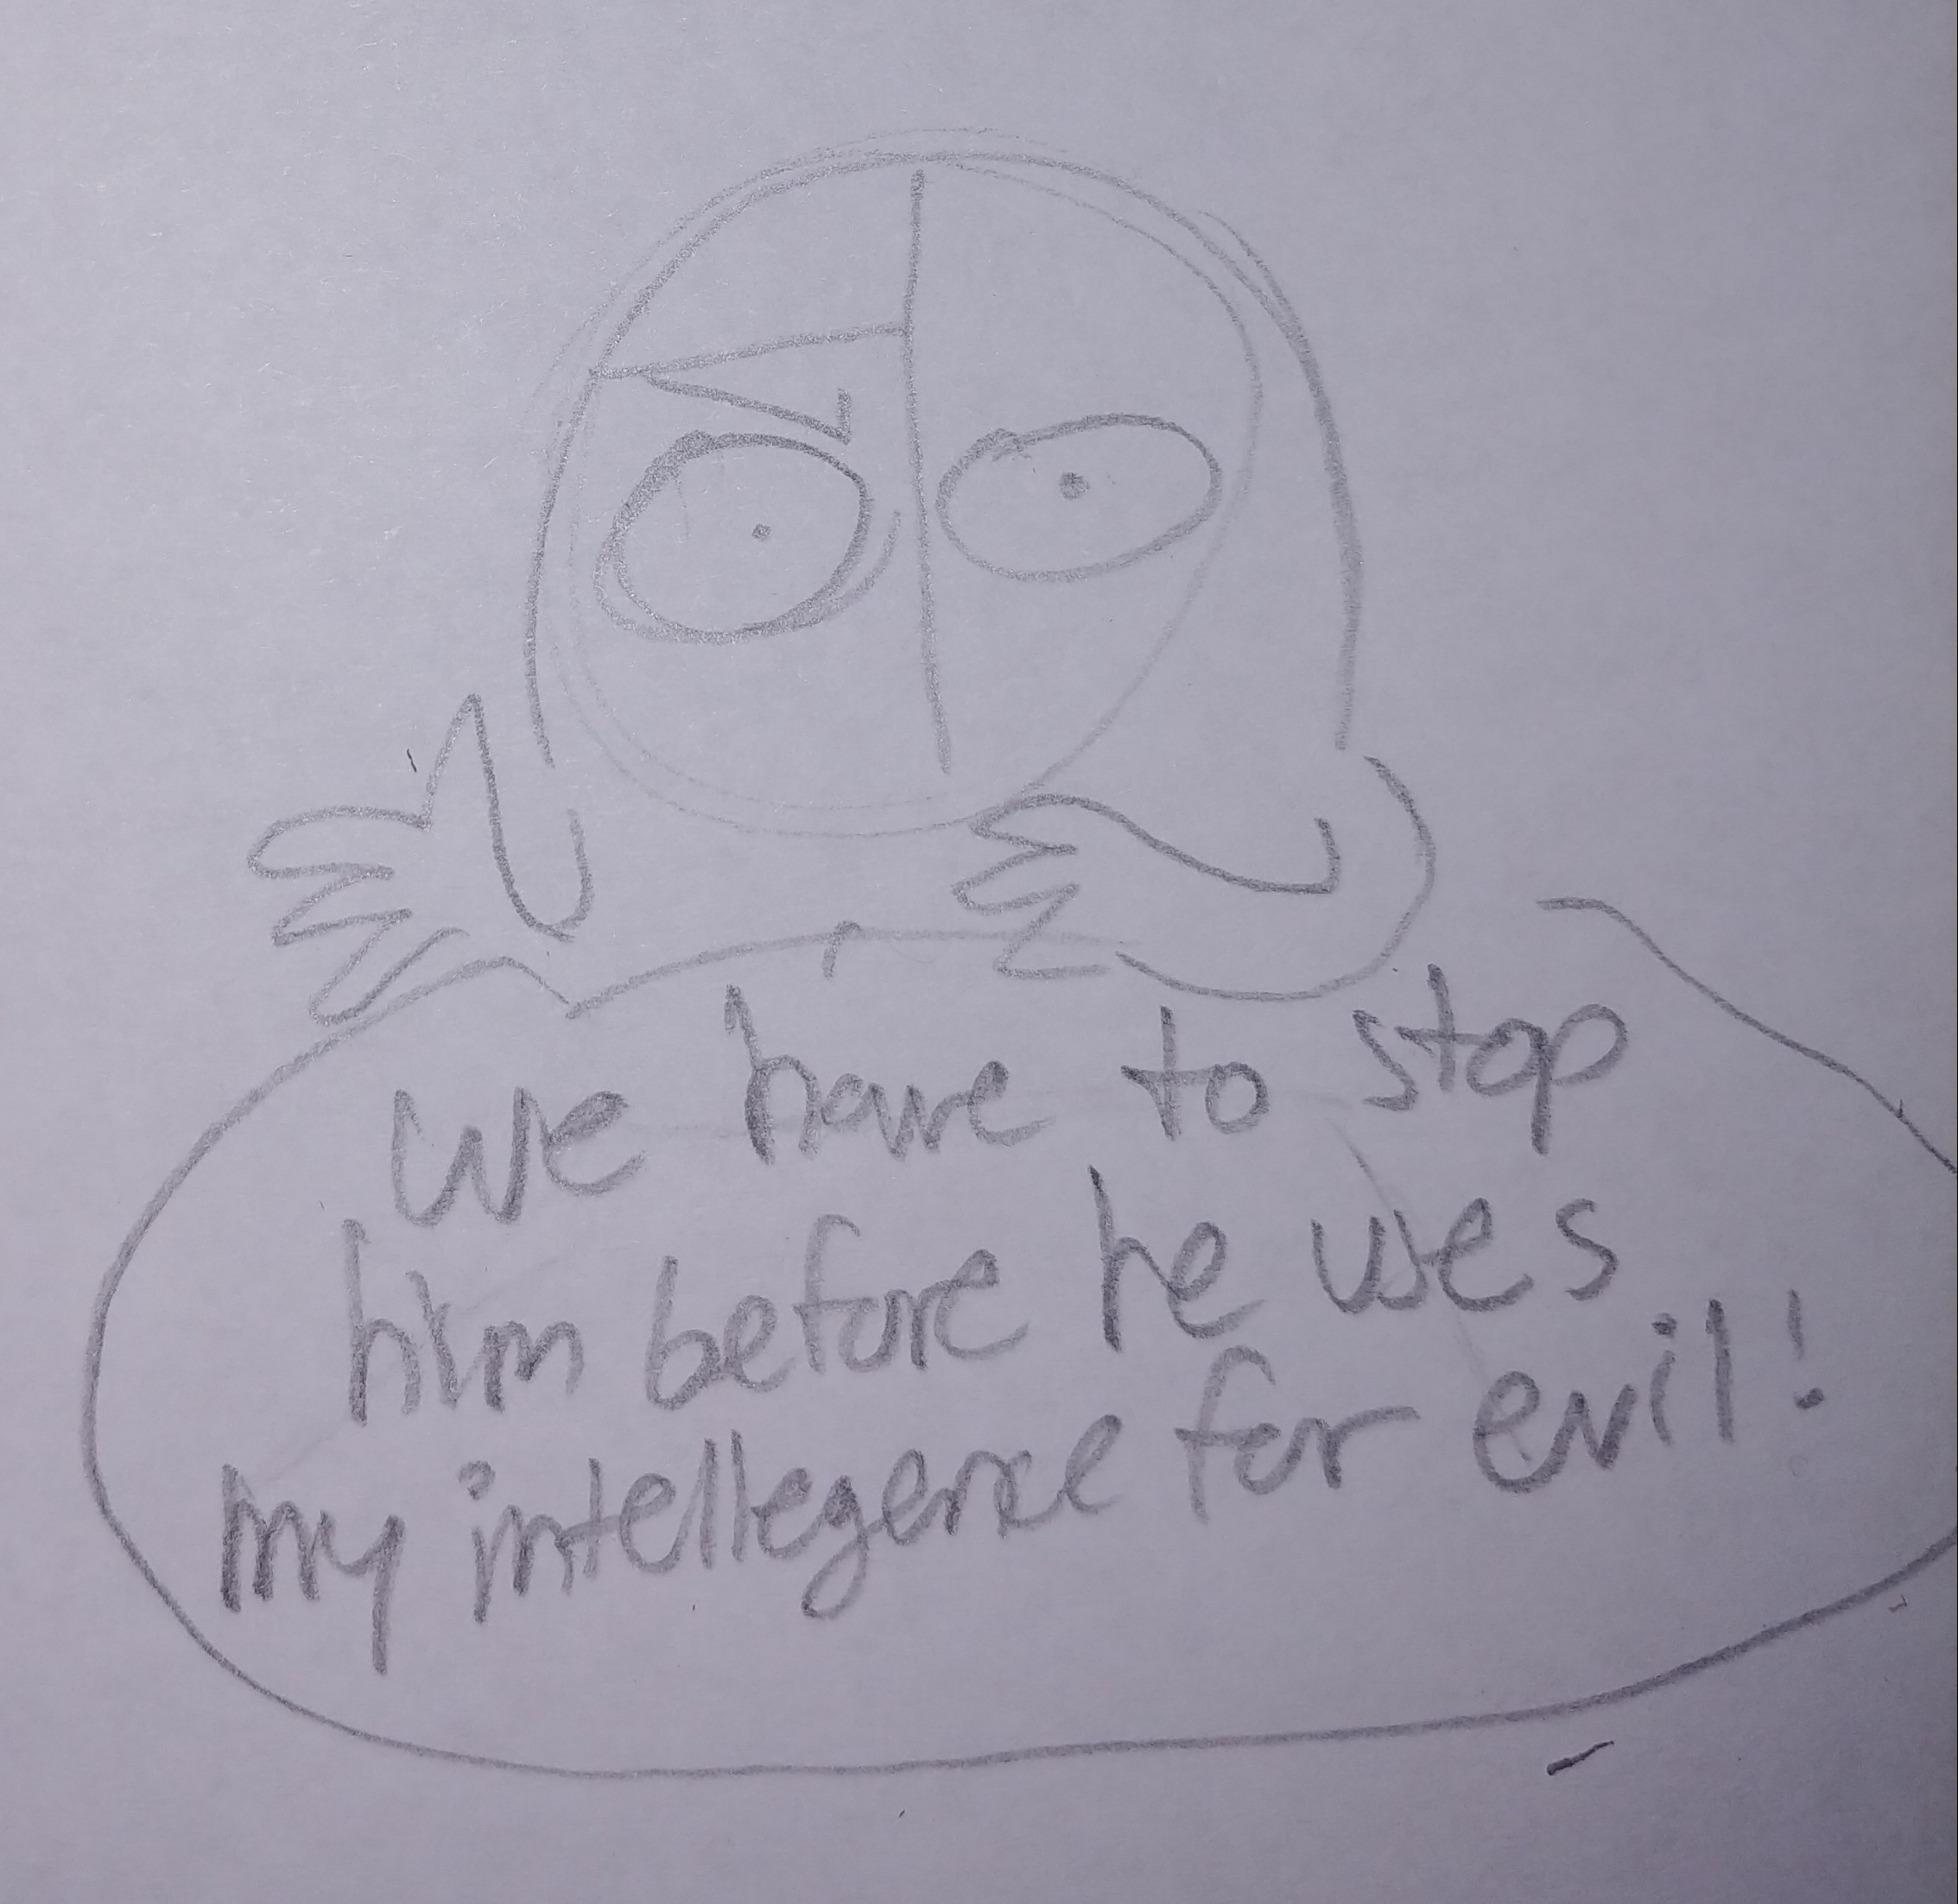 we have to stop
him before he uses
my intellegence for evil!